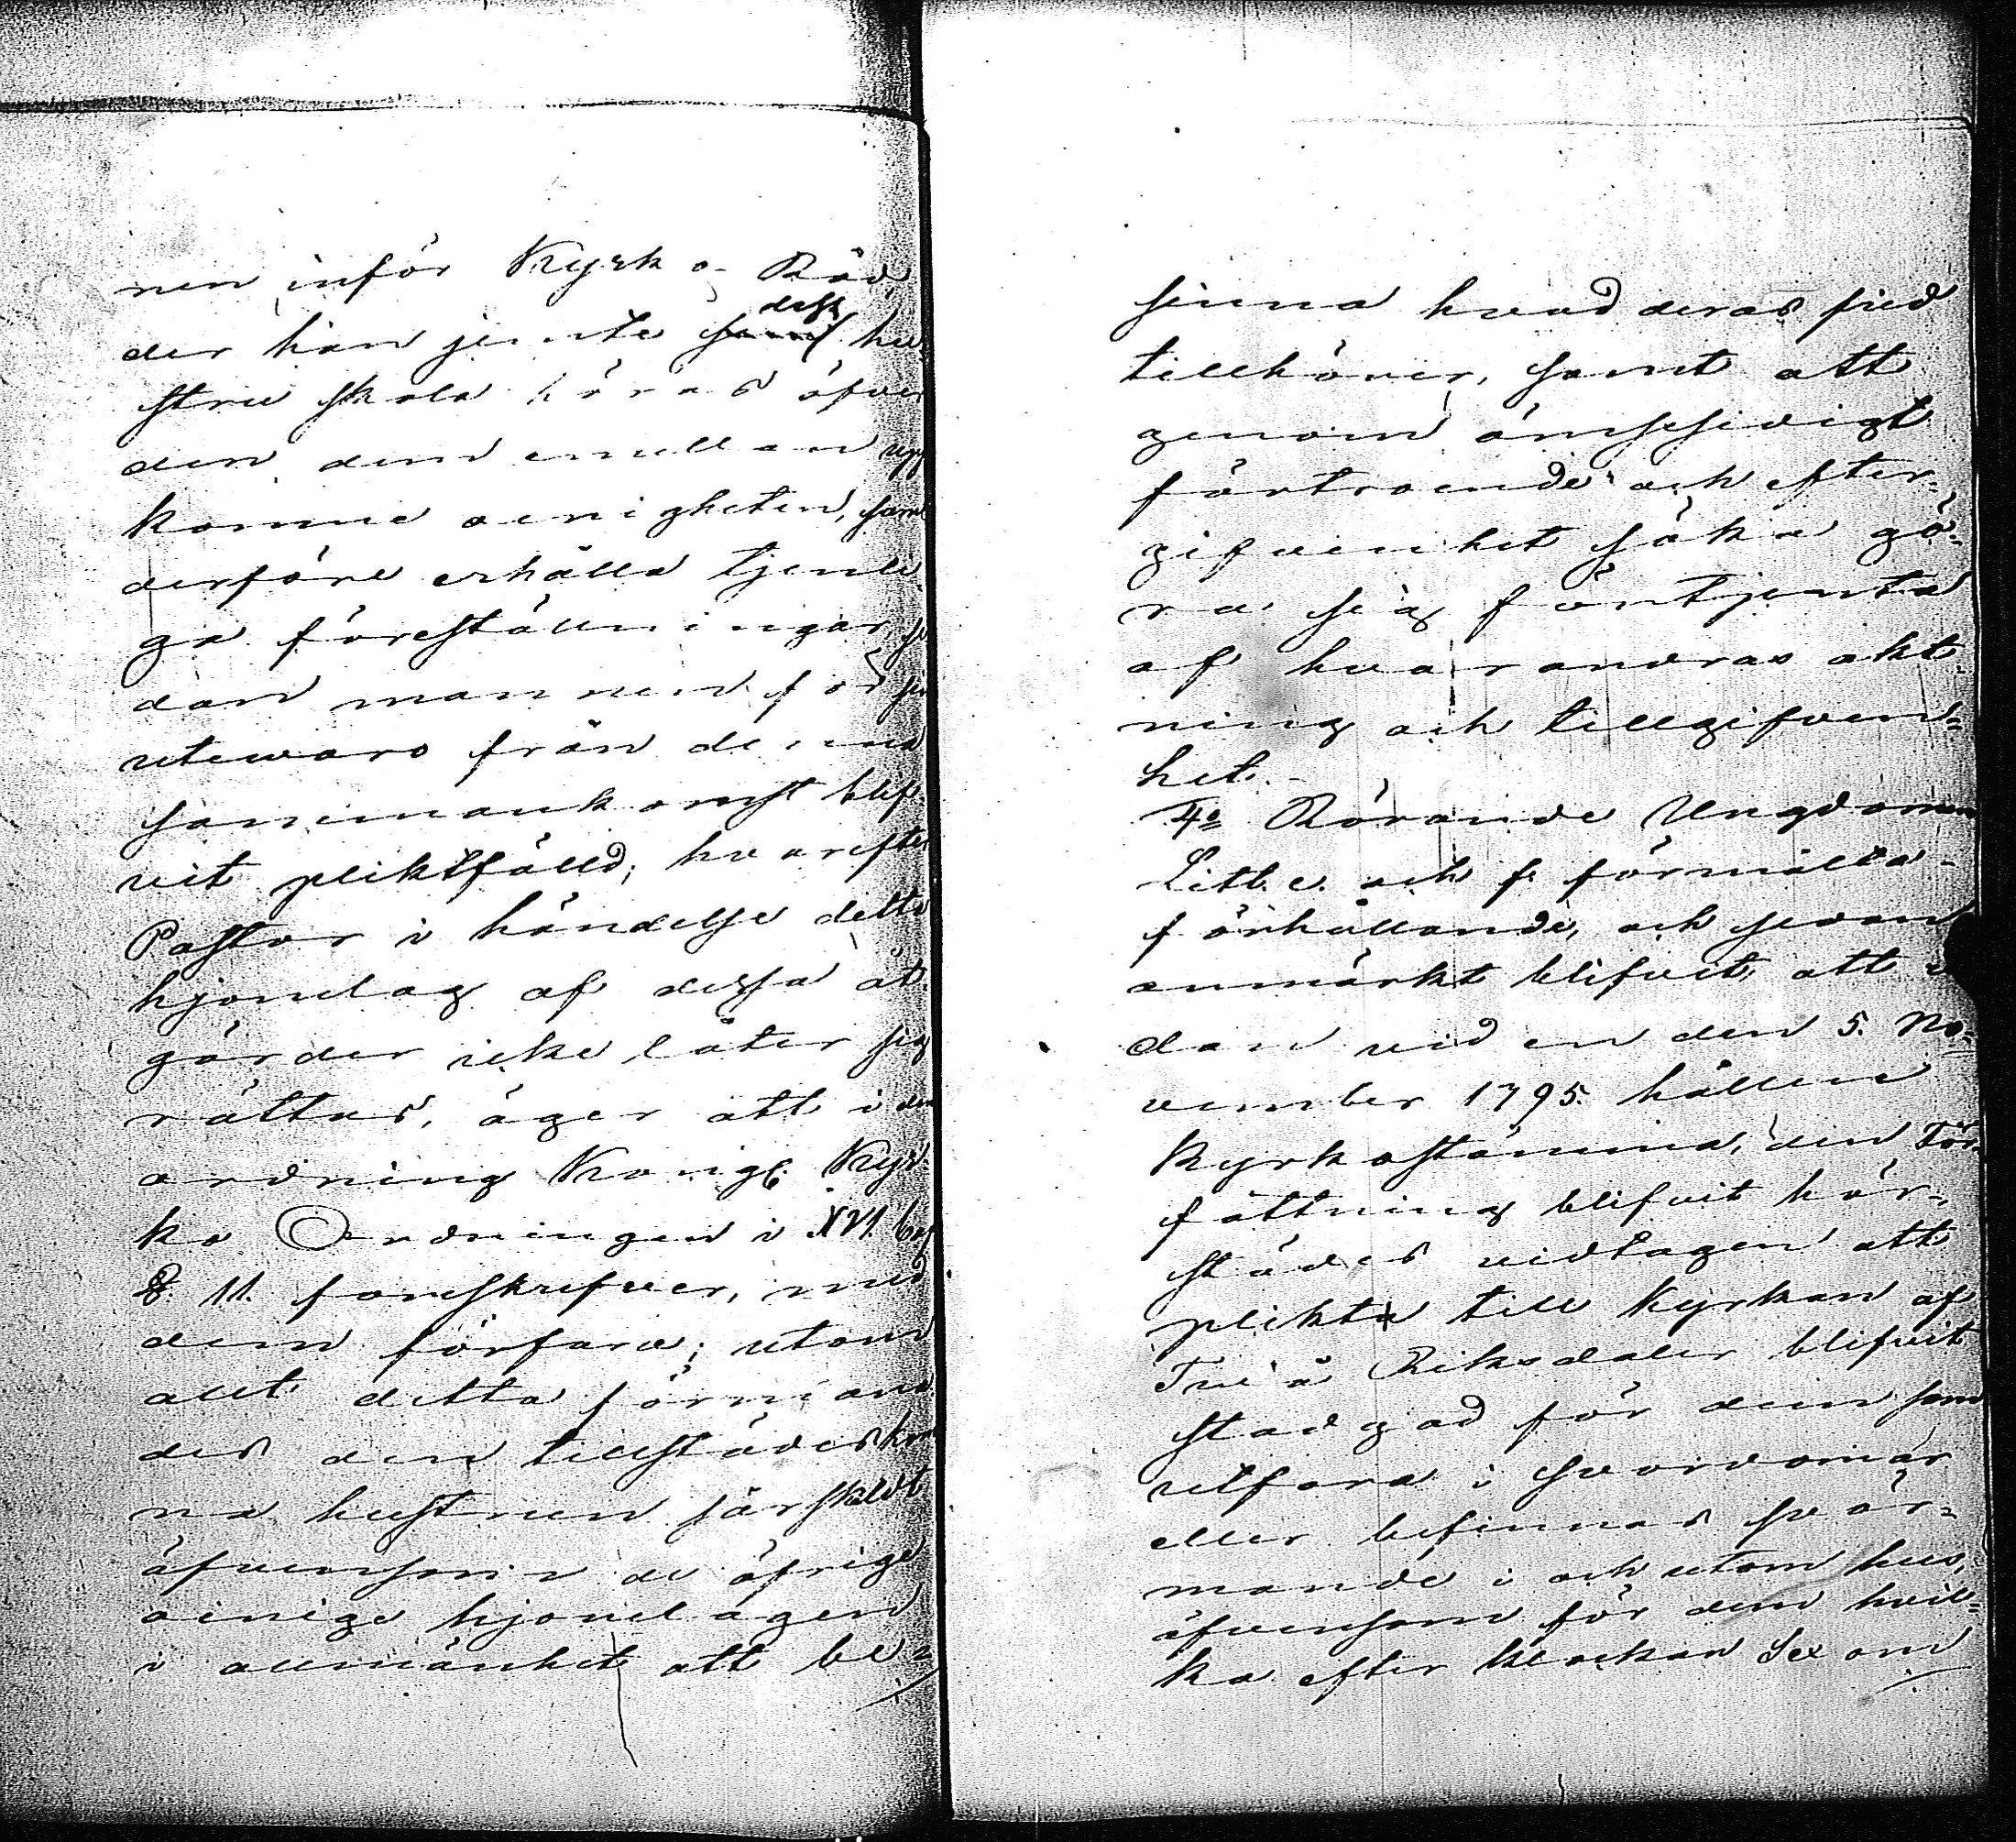 nen inför Kyrko-Råd,
der han jemte dess hu-
stru skola höras öfver
den dem emellan upp
komne oenigheten, samt
derföre erhålla tjenli-
ga föreställningar, se-
dan mannen för sin
utewaro från denna
sammankomst blif-
vit pliktfälld; hvarefter
Pastor i händelse detta
hjonelag af dessa åt-
gärder icke låter sig
rättas, äger att i den
ordning Kongl. Kyr-
ko Ordningen i XVI Cap
§. 11. föreskrifver, med
dem förfara; utom
allt detta förmana-
des den tillstädeskom
na hustrun särskildt
äfvensom de öfrige
oenige hjonelagen
i allmänhet att be-
sinna hvad deras frid
tillhörer, samt att
genom ömsesidigt
förtroende och efter-
gifvenhet söka gö-
ra sig förtjenta
af hvarandras akt-
ning och tillgifven-
het.-
4o Rörande Ungdomen
Litt. e. och f. förmälta
förhållande, och sedan
anmärkt blifvit att
dan vid en den 5. No-
vember 1795. hållen
Kyrkostämma, den För-
fattning blifvit här-
städes vidtagen att
plikta till Kyrkan af
Tre a Riksdaler blifvit
stadgad för dem som
utfara i svordomar
eller befinnas svär-
mande i och utom hus,
äfvensom för dem hvil-
ka efter klockan Sex om